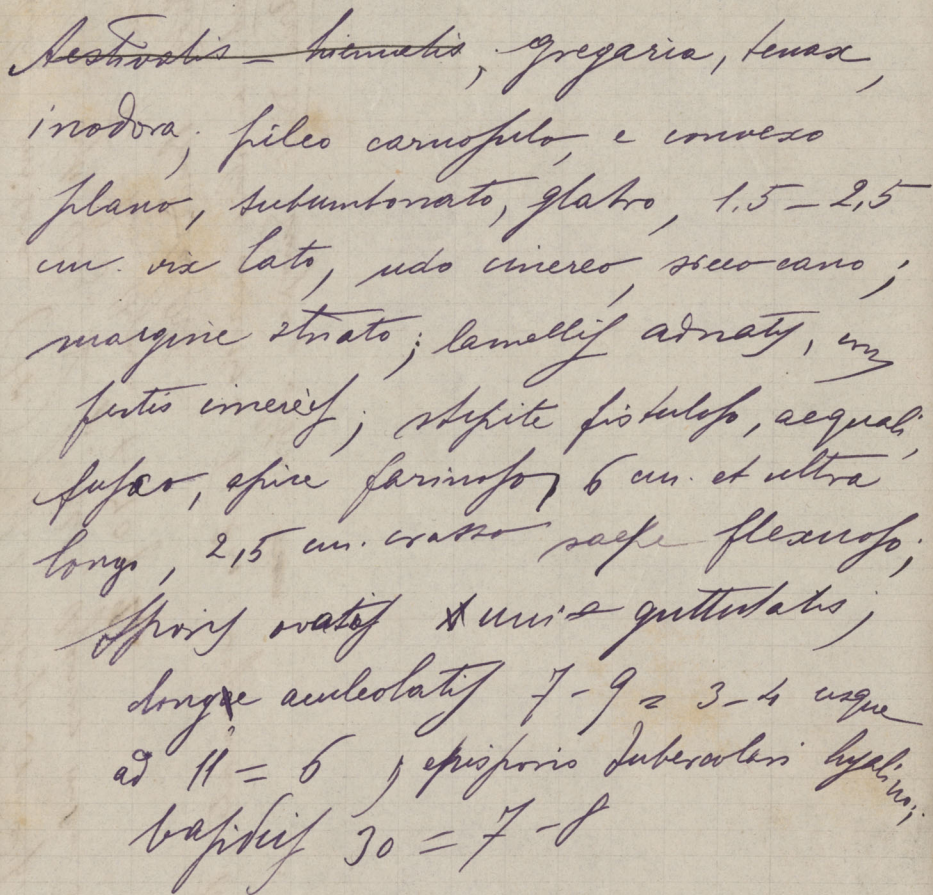 Aestivalis – hiemalis, gregaria, tenax,
inodora; pileo carnosulo, e convexo
plano, subumbonato, glabro, 1.5 – 2,5
cm. vix lato, udo cinereo, sicco cano;
margine striato; lamellis adnatis, con
fertis cinereis; stipite fistuloso, aequali,
fusco, apice farinoso, 6 cm. et ultra
longo, 2,5 cm. crasso saepe flexuoso;
Sporis ovatis uni = guttulatis;
longe aculeolatis 7 – 9 = 3 – 4 usque
ad 11 = 6, episporio tubercolari hyalino;
basidiis 30 = 7 – 8